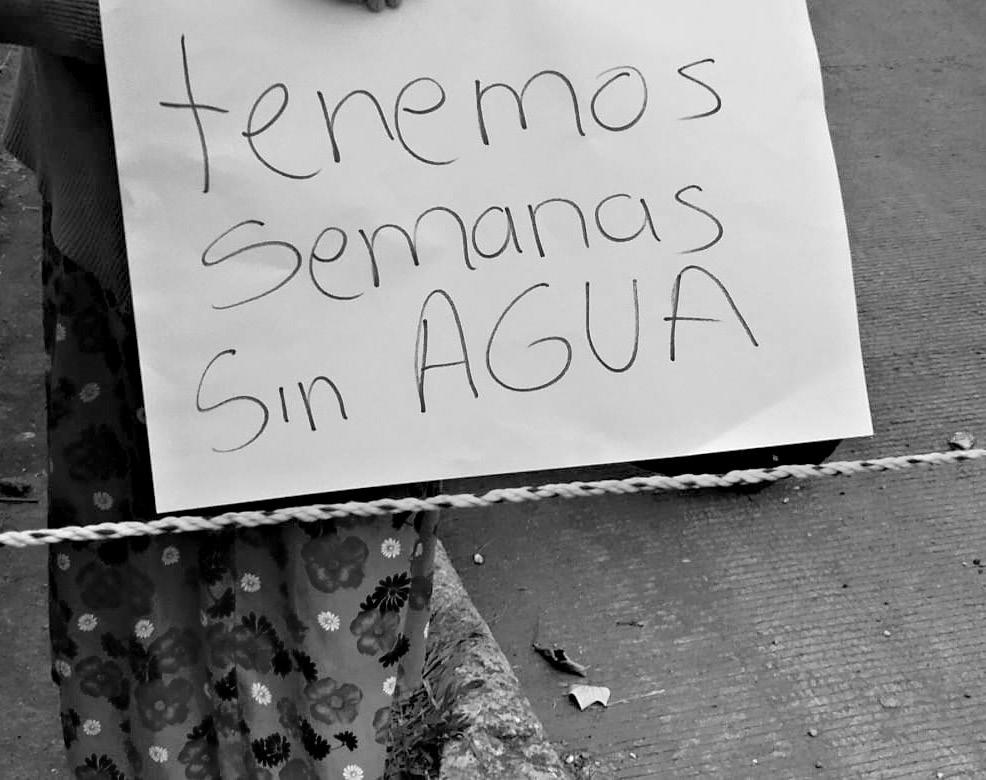 tenemos
semanas
Sin AGUA